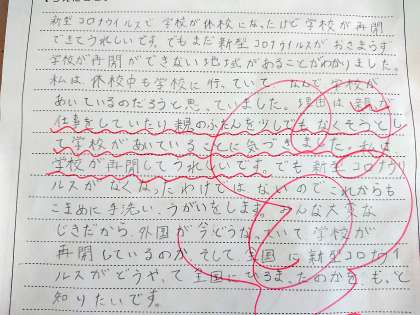 新型コロナウイルスで学校が休校になったけど学校が再開
できてうれしいです。でもまだ新型コロナウイルスがおさまらず
学校が再開ができない地域があることがわかりました。
私は休校中も学校に行っていてなんで学校が
あいているのだろうと思っていました。理由は親が
仕事をしていたり親のふたんを少しでもなくそうとし
て学校があいていることに気づきました。私は
学校が再開してうれしいです。でも新型コロナウイ
ルスがなくなったわけではないのでこれからも
こまめに手洗い、うがいをします。みんな大変な
じきだから、外国が今どうなっていて学校が
再開しているのかそして全国に新型コロナウイ
ルスがどうやって全国にひろまったのかをもっと
知りたいです。